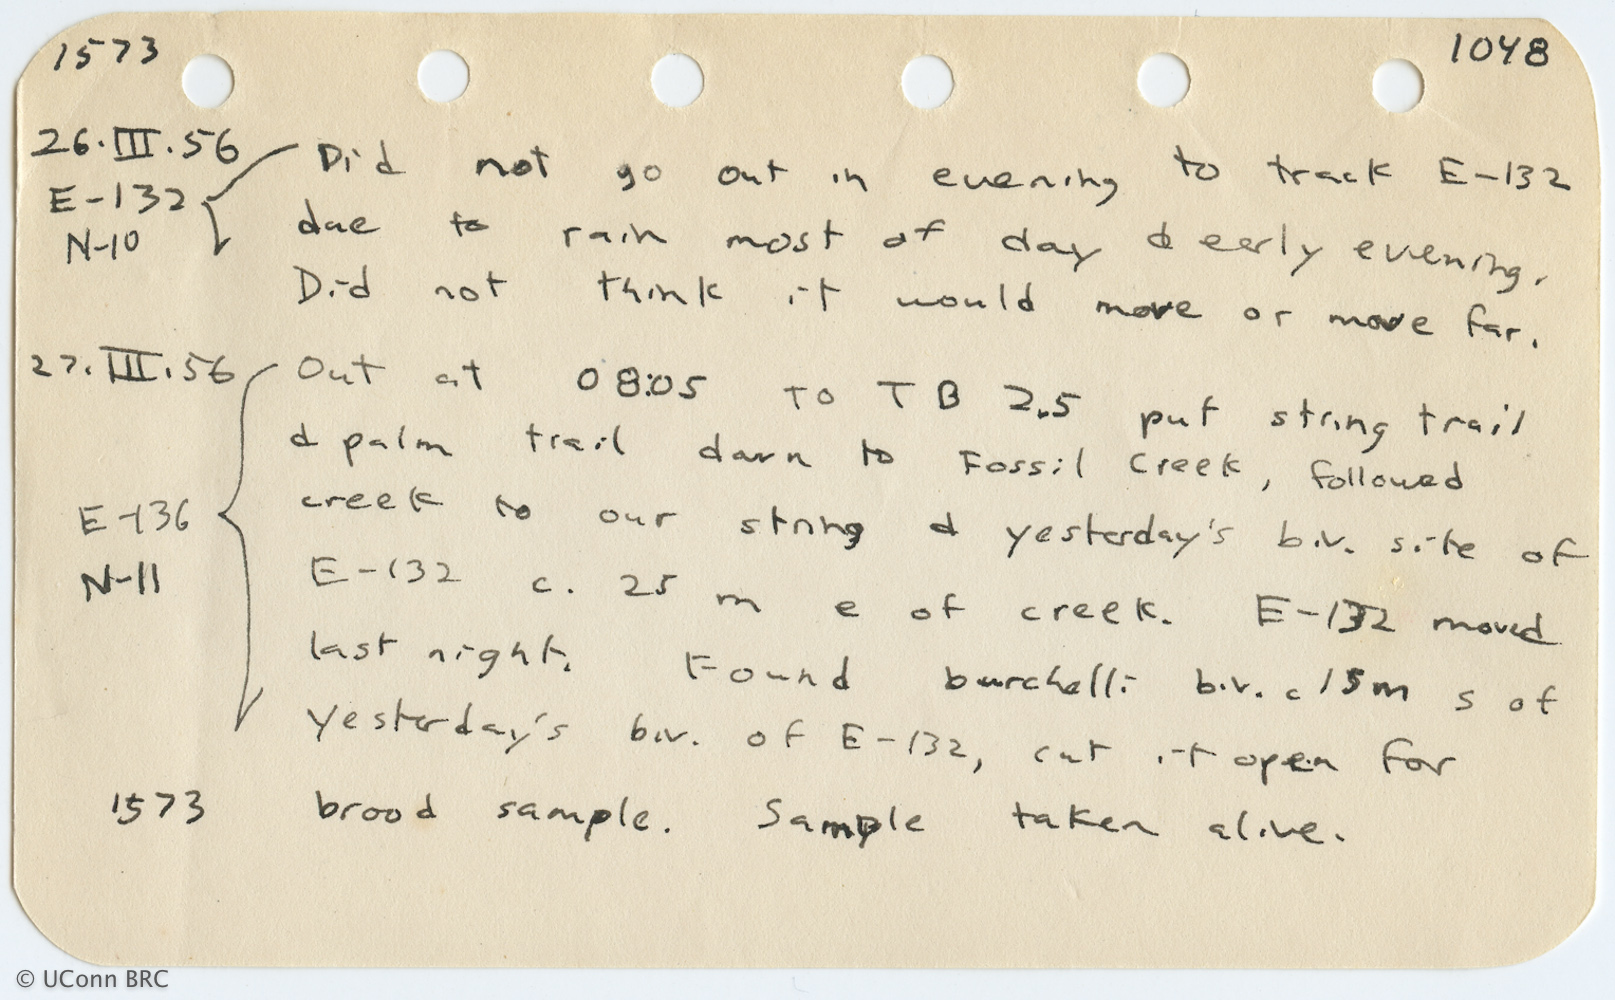 1573 1048
26.III.56 Did not go out in evening to track E-132
E-132 due to rain most of day & eerly evening.
N-10 Did not think it would move or move far.
27.III.56 Out at 08:05 TO TB 2.5 put string trail
& palm trail down to Fossil Creek, followed
E-136 creek to our string & yesterday's biv. site of
N-11 E-132 c. 25 m e of creek. E-132 moved
last night. Found burchelli biv. c 15m s of
yesterday's biv. of E-132, cut it open for
1573 brood sample. Sample taken alive.
© UConn BRC